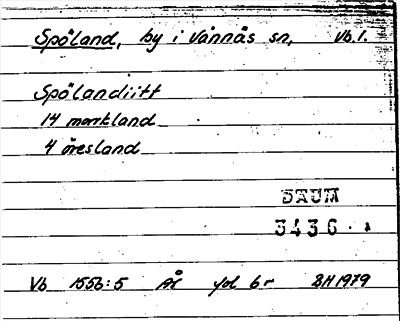 Spöland, by i Vännäs sn, Vb.l.
Spölandiitt
14 markland
4 öresland
DAUM
3436
Vb 1556:5 Ål jod br BH 1979